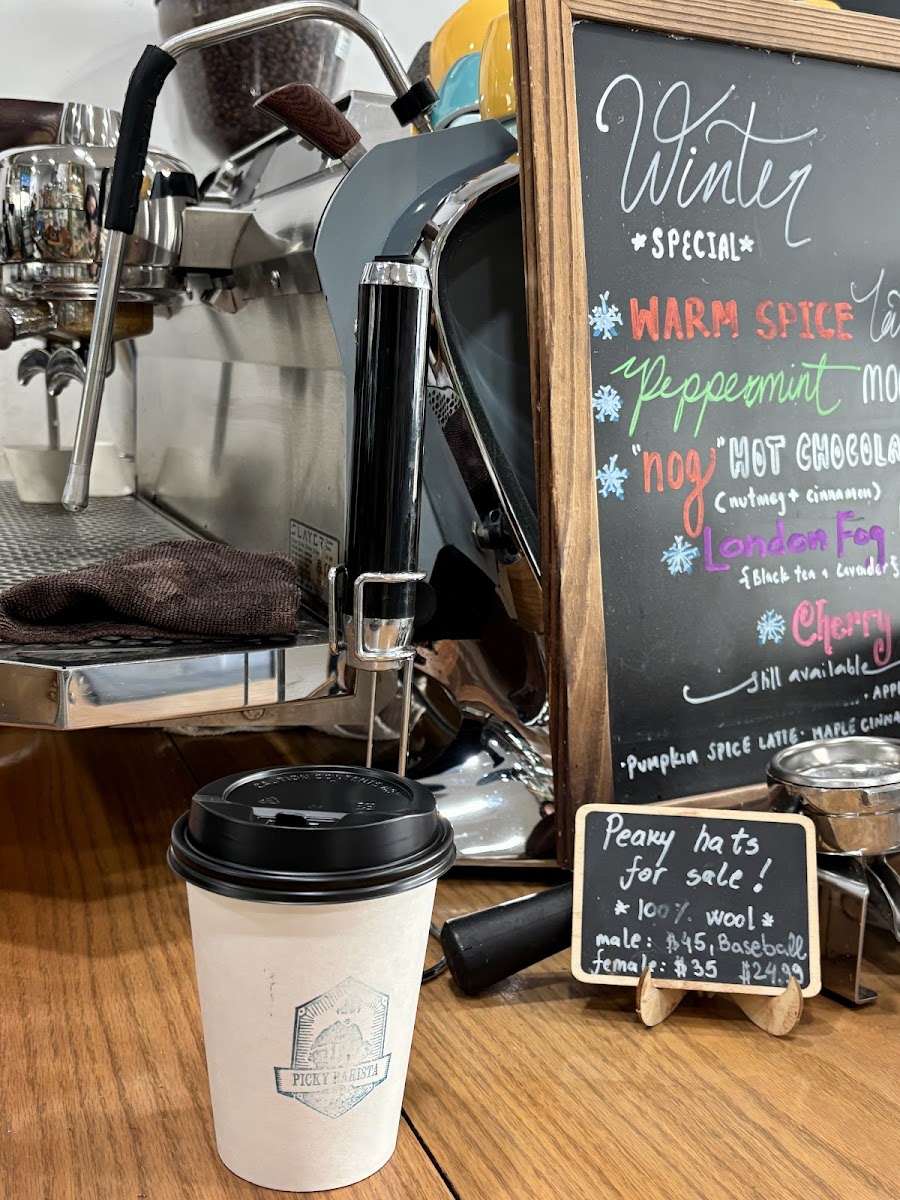 Winter
*SPECIAL*
WARM SPICE
Peppermint
"nog" HOT CHOCOLA
(nutmeg + cinnamon)
London Fog
{Black tea + Lavender}
Cherry
still available
• APP
• PUMPKIN SPICE LATTE • MAPLE CINNA
SLAYER
CAUTION
Peaky hats
for sale!
*100% wool*
male: $45, Baseball
female: $35 $24.99
PICKY BARISTA